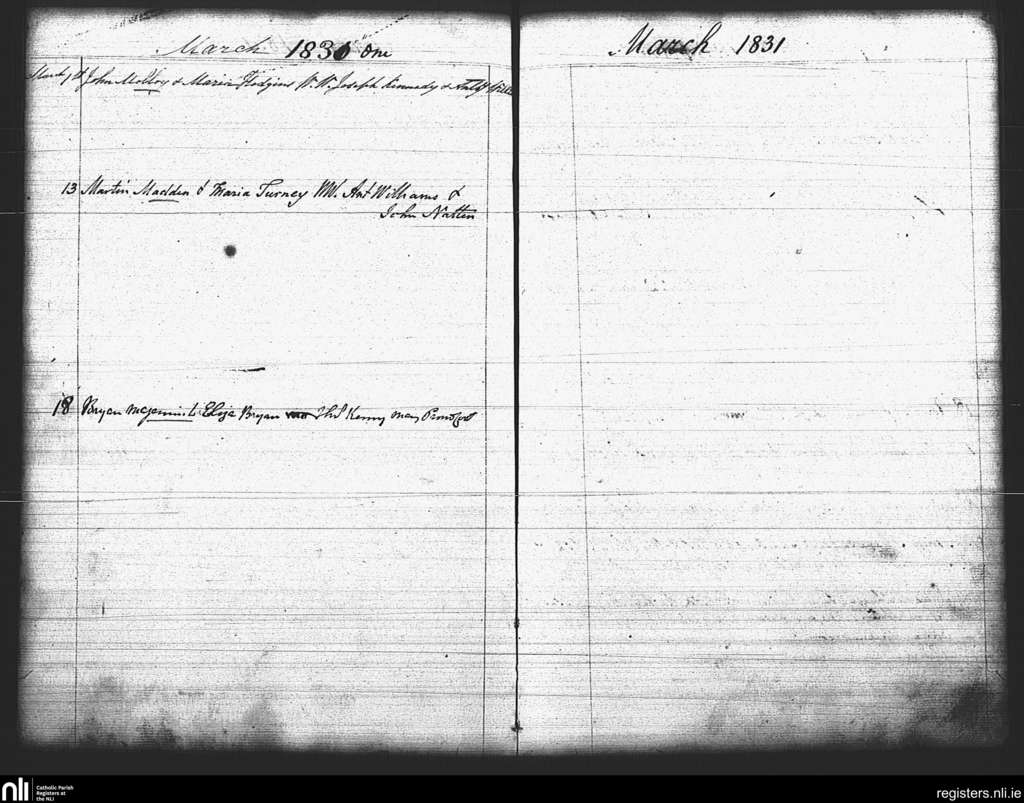 March 1831 One
March John Molloy & Maria Hodgins W.W. Joseph Kennedy &
13 Martin Madden & Maria Turney WW. Ant Williams &
John Natten
18 Bryan to Eliza Bryan Kenny
March 1831
nli Catholic Parish
Registers at
the NLI
registers.nli.ie